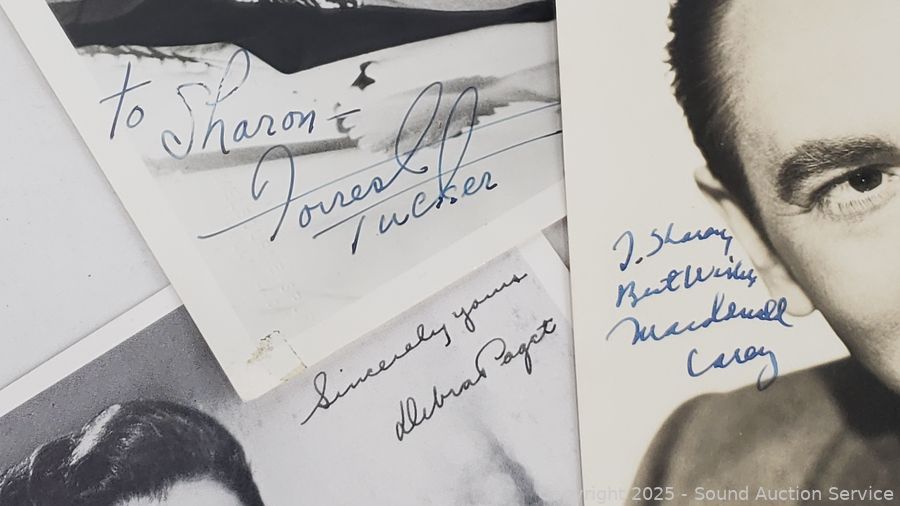 to Sharon -
Forrest
Tucker
Sincerely yours
Debra Paget
T. Sharon,
Best Wishes
Macdonald
Carey
right 2025 - Sound Auction Service